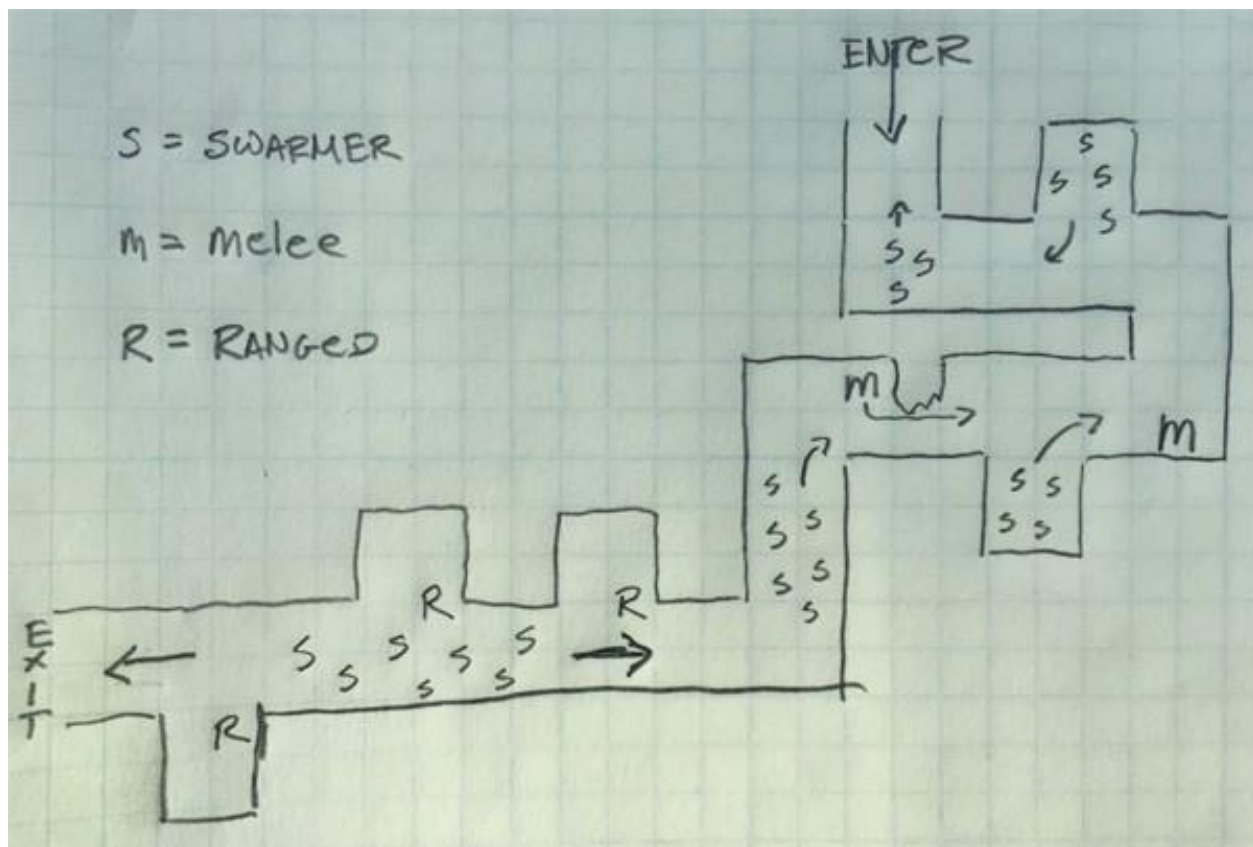 ENTER
S = SWARMER
m = melee
R = RANGED
S
S S
S
S S
S
m
m
S S
S S
S
S S
S S
S
R
R
S S S S
S S S
R
EXIT